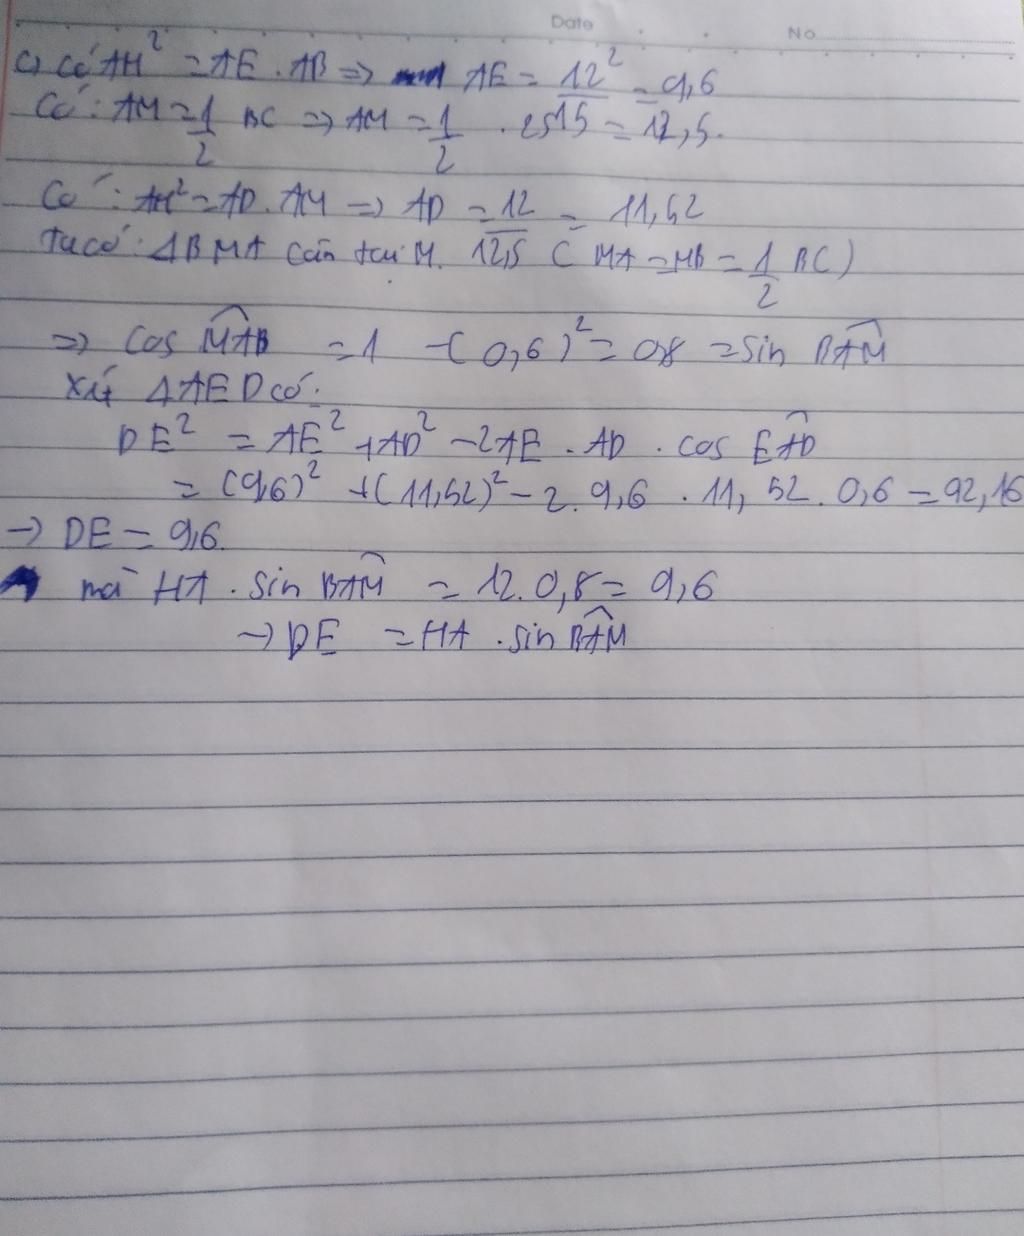 Date No
c) Có AH² = AE . AB => AE = 12²/15 = 9,6
Có: AM = 1/2 BC => AM = 1/2 . 25 = 12,5.
Có: AH² = AD . AM => AD = 12/12,5 = 11,52
Ta có: ΔBMA cân tại M. ( MA = MB = 1/2 BC)
=> cos MAB = 1 - (0,6)² = 0,8 = sin BAM
Xét ΔAED có:
DE² = AE² + AD² - 2AE . AD . cos EAD
= (9,6)² + (11,52)² - 2. 9,6 . 11,52 . 0,6 = 92,16
-> DE = 9,6.
mà HA . sin BAM = 12. 0,8 = 9,6
-> DE = HA . sin BAM